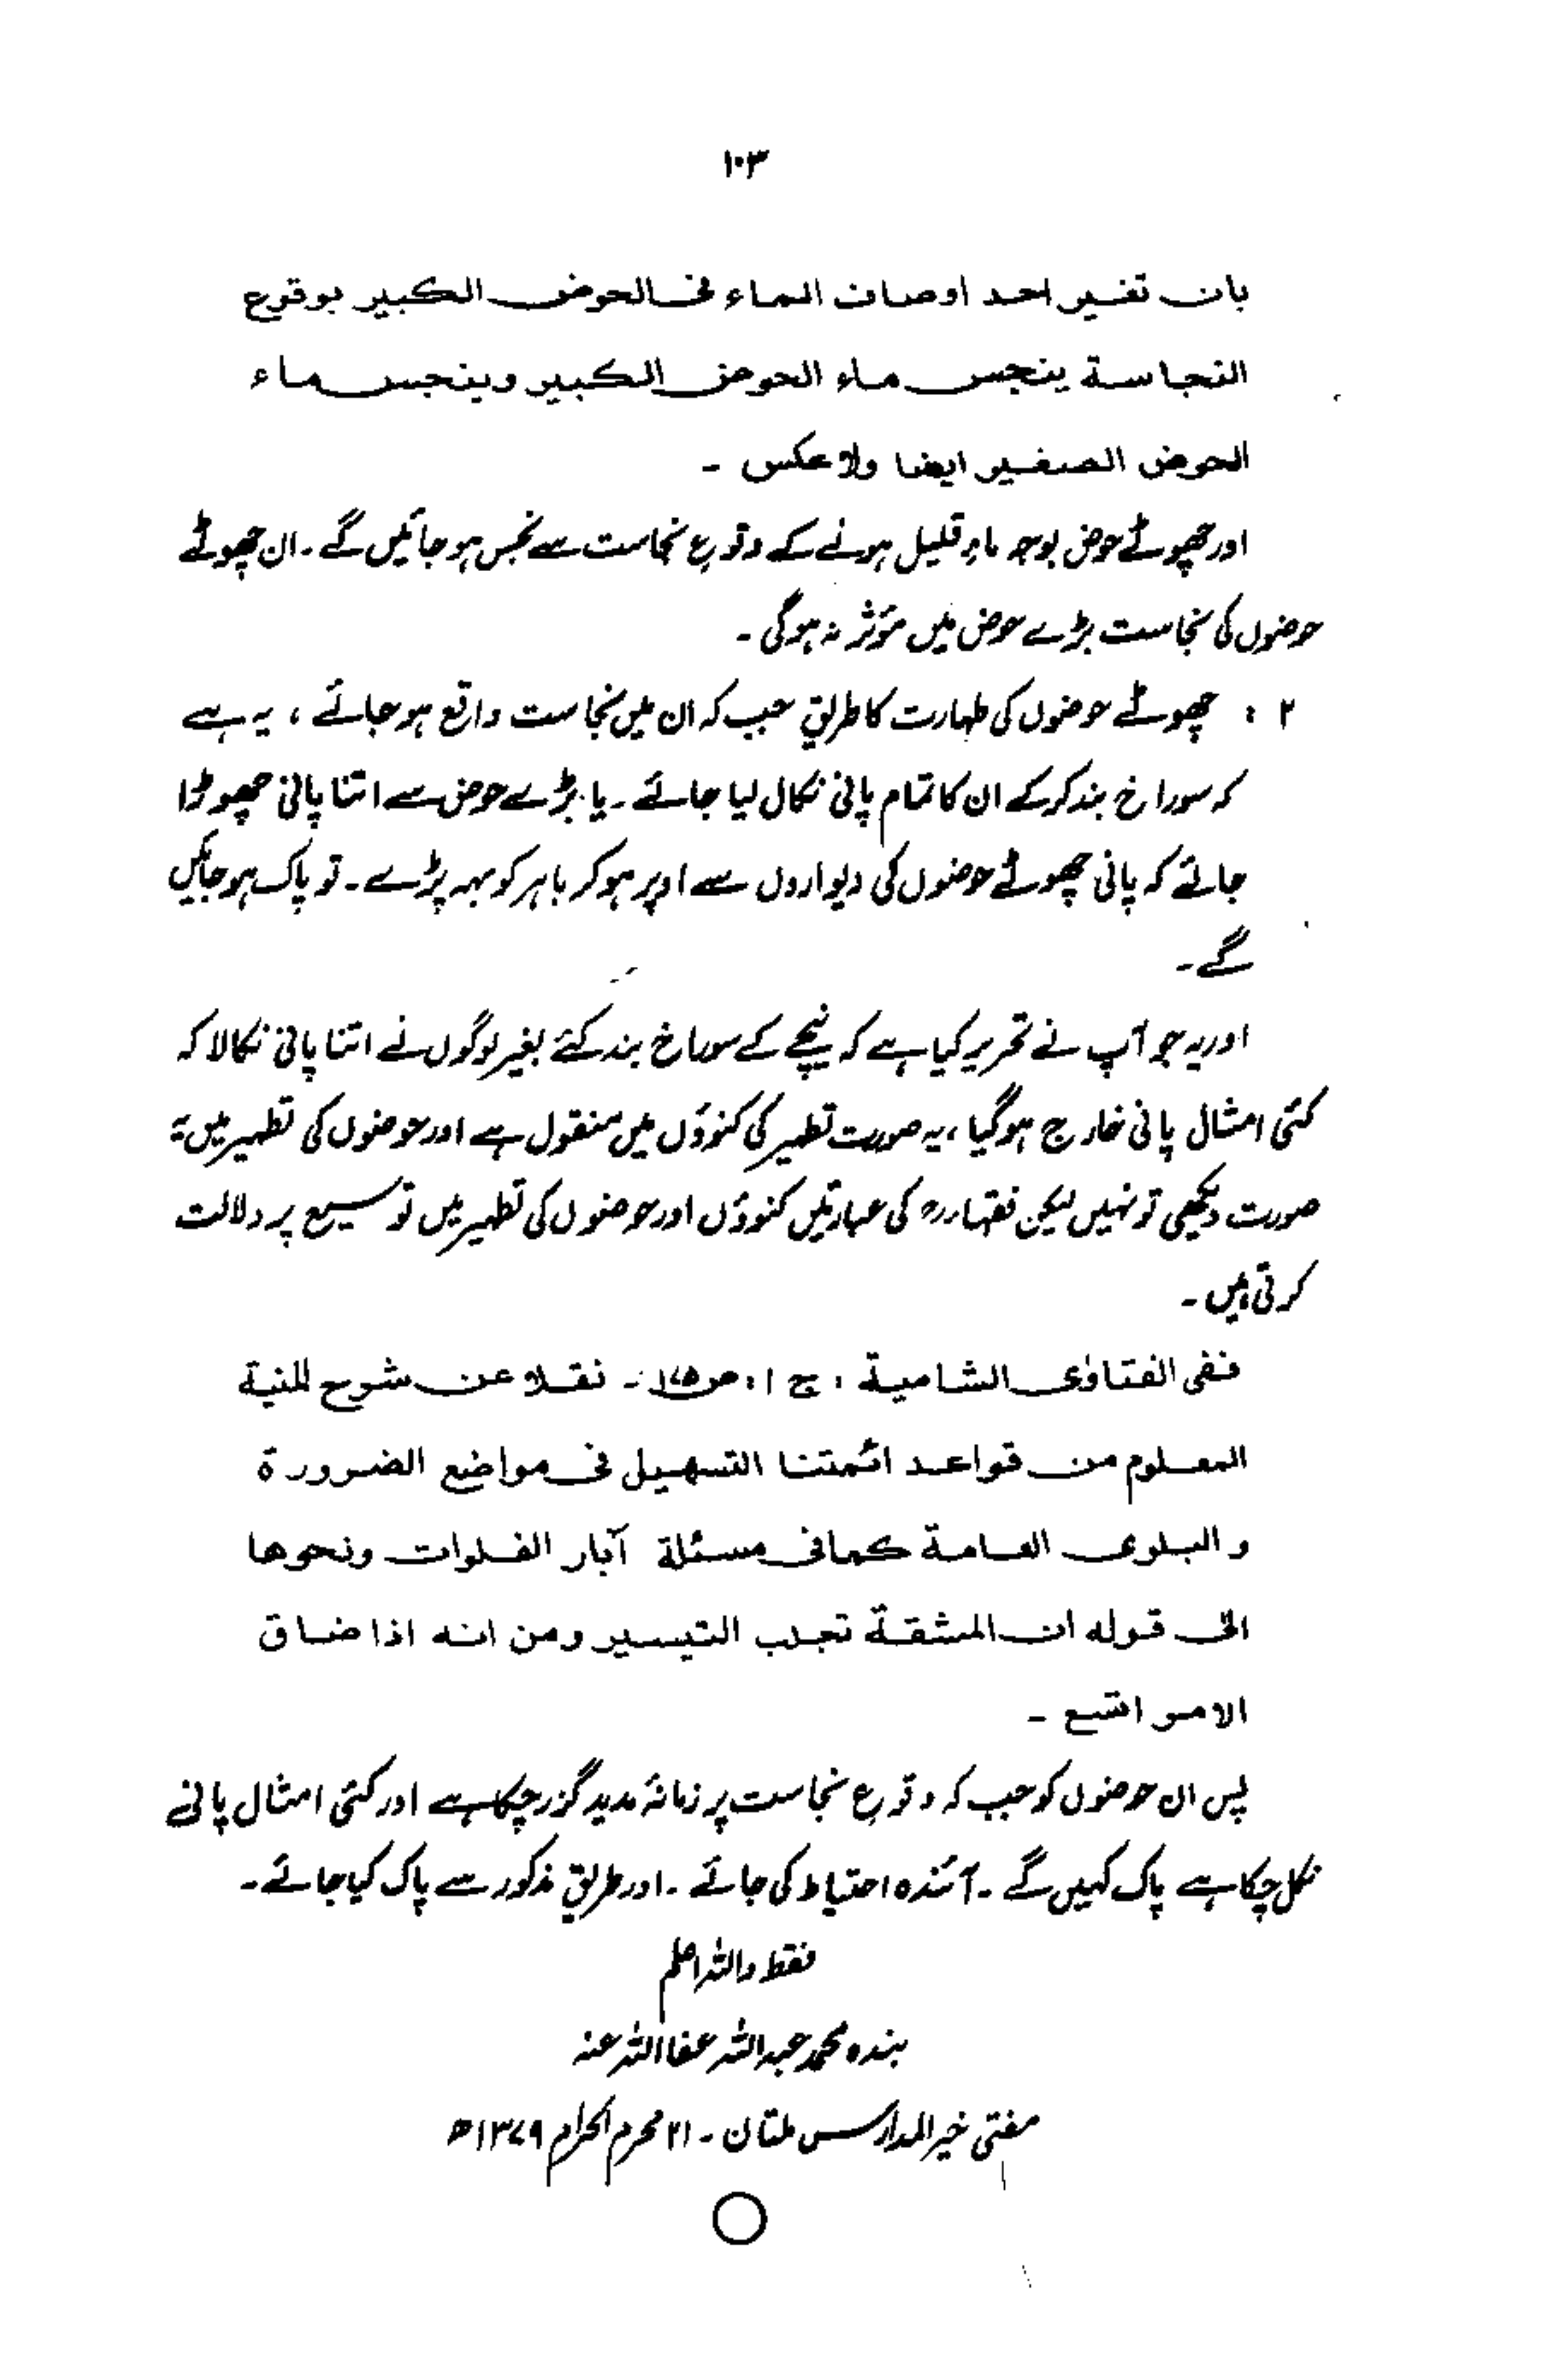 ۱۰۳
بان تغیر احد اوصاف الماء فی الحوض الکبیر بوقوع
النجاسة ینجس ماء الحوض الکبیر وینجس ماء
الحوض الصغیر ایضا ولا عکس ۔
اور چھوٹے حوض بوجہ ماءِ قلیل ہونے کے وقوعِ نجاست سے نجس ہو جائیں گے ۔ ان چھوٹے
حوضوں کی نجاست بڑے حوض میں مؤثر نہ ہوگی ۔
۲ : چھوٹے حوضوں کی طہارت کا طریق جب کہ ان میں نجاست واقع ہو جائے ، یہ ہے
کہ سوراخ بند کرکے ان کا تمام پانی نکال لیا جائے ۔ یا بڑے حوض سے اتنا پانی چھوڑا
جائے کہ پانی چھوٹے حوضوں کی دیواروں سے اوپر ہو کر باہر کو بہہ پڑے ۔ تو پاک ہو جائیں
گے ۔
اور یہ جو آپ نے تحریر کیا ہے کہ نیچے کے سوراخ بند کئے بغیر لوگوں نے اتنا پانی نکالا کہ
کئی امثال پانی خارج ہو گیا ، یہ صورت تطہیر کی کنوؤں میں منقول ہے اور حوضوں کی تطہیر میں یہ
صورت دیکھی تو نہیں لیکن فقہاءرہ کی عبارتیں کنوؤں اور حوضوں کی تطہیر میں توسیع پر دلالت
کرتی ہیں ۔
ففی الفتاوٰی الشامیة ، ج ۱ : ص۱۷۵ ۔ نقلا عن شرح المنیة
المعلوم من قواعد ائمتنا التسهیل فی مواضع الضرورة
والبلوی العامة کما فی مسئلة آبار الفلوات ونحوها
الی قوله ان المشقة تجلب التیسیر ومن انه اذا ضاق
الامر اتسع ۔
پس ان حوضوں کو جب کہ وقوعِ نجاست پر زمانۂ مدید گزر چکا ہے اور کئی امثال پانی
نکل چکا ہے پاک کہیں گے ۔ آئندہ احتیاط کی جائے ۔ اور طریقِ مذکور سے پاک کیا جائے ۔
فقط واللہ اعلم
بندہ محمد عبداللہ عفا اللہ عنہ
مفتی خیر المدارس ملتان ۔ ۲۱ محرم الحرام ۱۳۷۹ھ